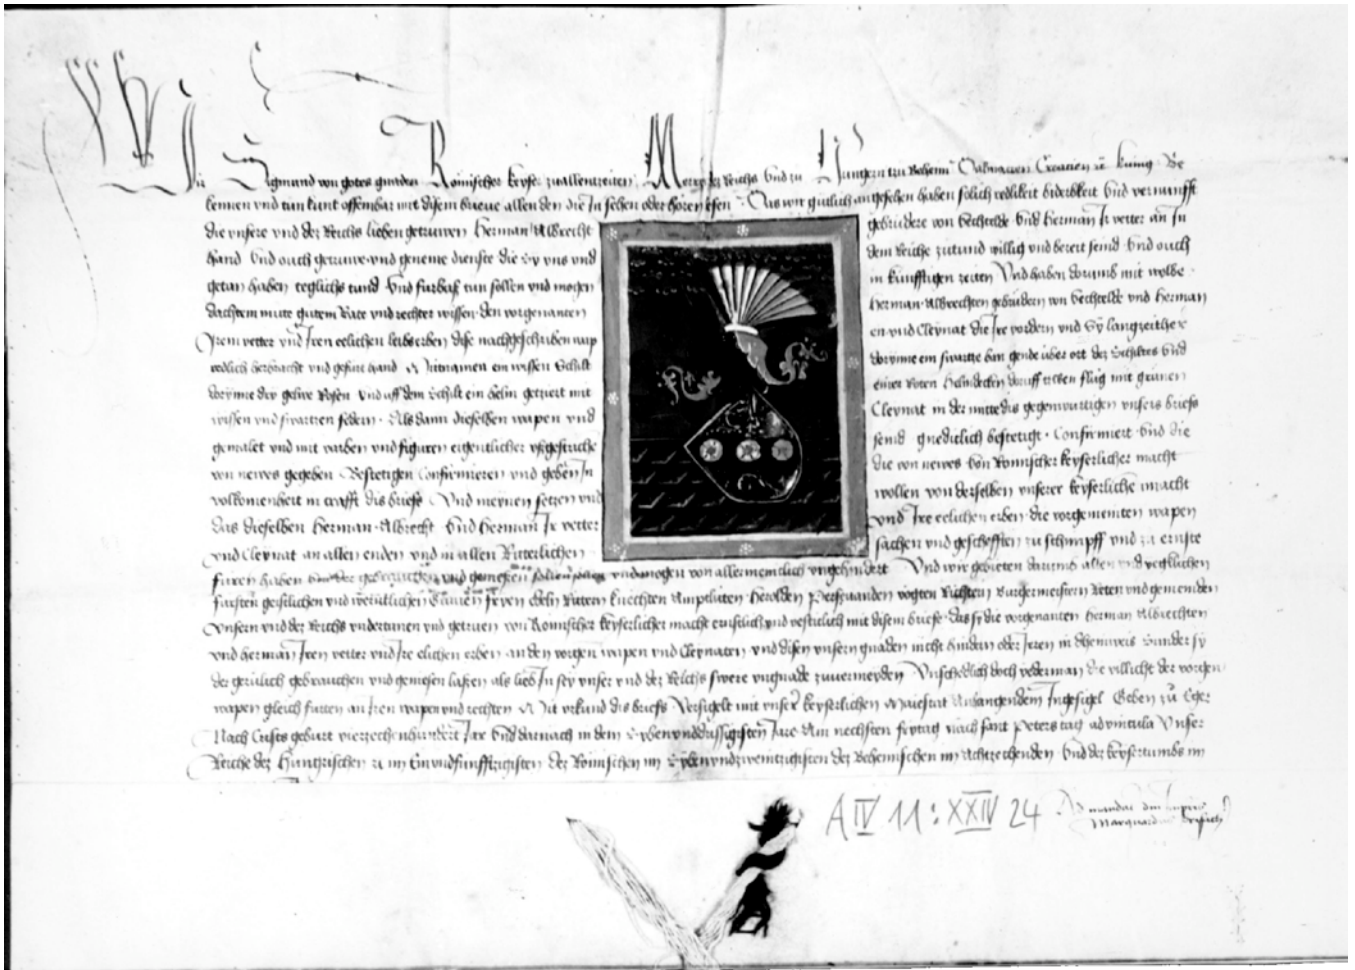 Wir Sigmund von gotes gnaden Romischer keyser zuallentzeiten Merer des Reichs Vnd zu Hungern zu Behem Dalmacien Croacien &c kunig Be
kennen vnd tun kunt offembar mit disem brieue allen den die In sehen oder horen lesen Das wir gutlich angesehen haben solich redlikeit biderbkeit vnd vernunfft
die vnsere vnd des Reichs lieben getruwen Herman Albrecht gebrudere von Bechtolde vnd Herman Ir vetter an In
hand Vnd ouch getruwe vnd geneme dienste die Sy vns vnd dem Reiche zutund willig vnd bereit seind Vnd ouch
getan haben teglichs tund Vnd furbaß tun sollen vnd mogen in kunfftigen zeiten Vnd haben dorumb mit wolbe
dachtem mute gutem Rate vnd rechter wissen den vorgenanten Herman Albrechten gebrudern von Bechtolde vnd Herman
Irem vetter vnd Iren eelichen leibserben dise nachgeschriben wap en vnd Cleynat die Ire vordern vnd Sy lang zeither
redlich herbracht vnd gefurt hand Mitnamen ein wissen Schilt dorynne ein swartze gende über ort des Schiltes Vnd
dorynne drey gelwe Rosen Vnd uff dem Schilt ein helm getziert mit einer Roten Helmdecken doruff flug mit
wissen vnd swartzen federn Als dann dieselben wapen vnd Cleynat in der mitte dis gegenwurtigen vnsers briefs
gemalet vnd mit varben vnd figuren eigentlicher vßgestriche seind gnediclich bestetigt Confirmiert Vnd die
von newes gegeben Bestetigen Confirmieren vnd geben In die von newes von Romischer keyserlicher macht
volkomenheit in crafft dis briefs Vnd meynen setzen vnd wollen von derselben vnserer keyserliche macht
das dieselben Herman Albrecht Vnd Herman Ir vetter vnd Ire eelichen erben die vorgemelten wapen
vnd Cleynat an allen enden vnd in allen Ritterlichen sachen vnd geschefften zu schimpff vnd zu ernste
furen haben vnd der gebruchen vnd geniessen sollen vnd mogen von allermeniclich vngehindert Vnd wir gebieten dorumb allen vnd yeglichen
fursten geistlichen vnd werntlichen Grauen fryen edeln Rittern knechten Amptluten Herolden Persevanden vogten Richtern Burgermeistern Reten vnd gemeinden
Vnsern vnd des Reichs vndertanen vnd getruen von Romischer keyserlicher macht ernstlich vnd vesticlich mit disem briefe das sy die vorgenanten Herman Albrechten
vnd Herman Iren vetter vnd Ire elichen erben an den vorgen wapen vnd Cleynaten vnd disen vnsern gnaden nicht hindern oder Irren in dheinweis Sunder sy
der gerulich gebrauchen vnd geniessen lassen als lieb In sey vnser vnd des Reichs swere vngnade zuuermeyden Vnschedlich doch yederman die villicht der vorgen
wapen gleich furten an Iren wapen vnd rechten Mit vrkund dis briefs Versigelt mit vnser keyserlichen Maiestat Anhangendem Ingesigel Geben zu Eger
Nach Crists geburt vierzehenhundert Jar Vnd darnach in dem Sybenvnddrissigisten Jare Am nechsten frytag nach sant Peters tag advincula Vnser
Reiche des Hungrischen &c im Einvndfunfftzigisten des Romischen im Sybenvndzweintzigisten des Behemischen im Achtzehenden Vnd des keysertumbs im
A IV 11 : XXIV 24
Ad mandat dni Imperat
Marquardus Brisach